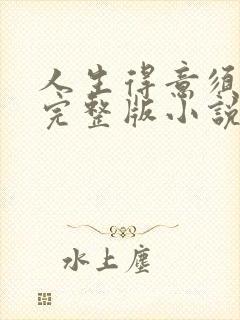 人生得意须
完整版小說
水上塵